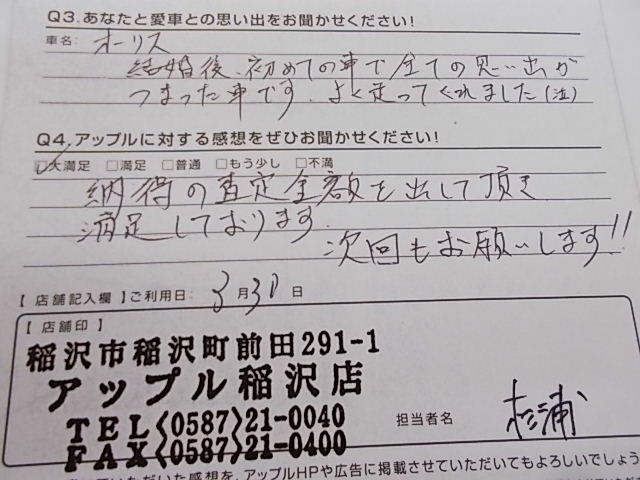 Q3.あなたと愛車との思い出をお聞かせください!
車名: オーリス
結婚後、初めての車で全ての思い出が
つまった車です。よく走ってくれました(泣)
Q4.アップルに対する感想をぜひお聞かせください!
☑大満足 □満足 □普通 □もう少し □不満
納得の査定金額を出して頂き
満足しております。
次回もお願いします!!
【店舗記入欄】ご利用日: 3月30日
【店舗印】
稲沢市稲沢町前田291-1
アップル稲沢店
TEL〈0587〉21-0040
FAX〈0587〉21-0400
担当者名 杉浦
いただいた感想を、アップルHPや広告に掲載させていただいてもよろしいでしょう